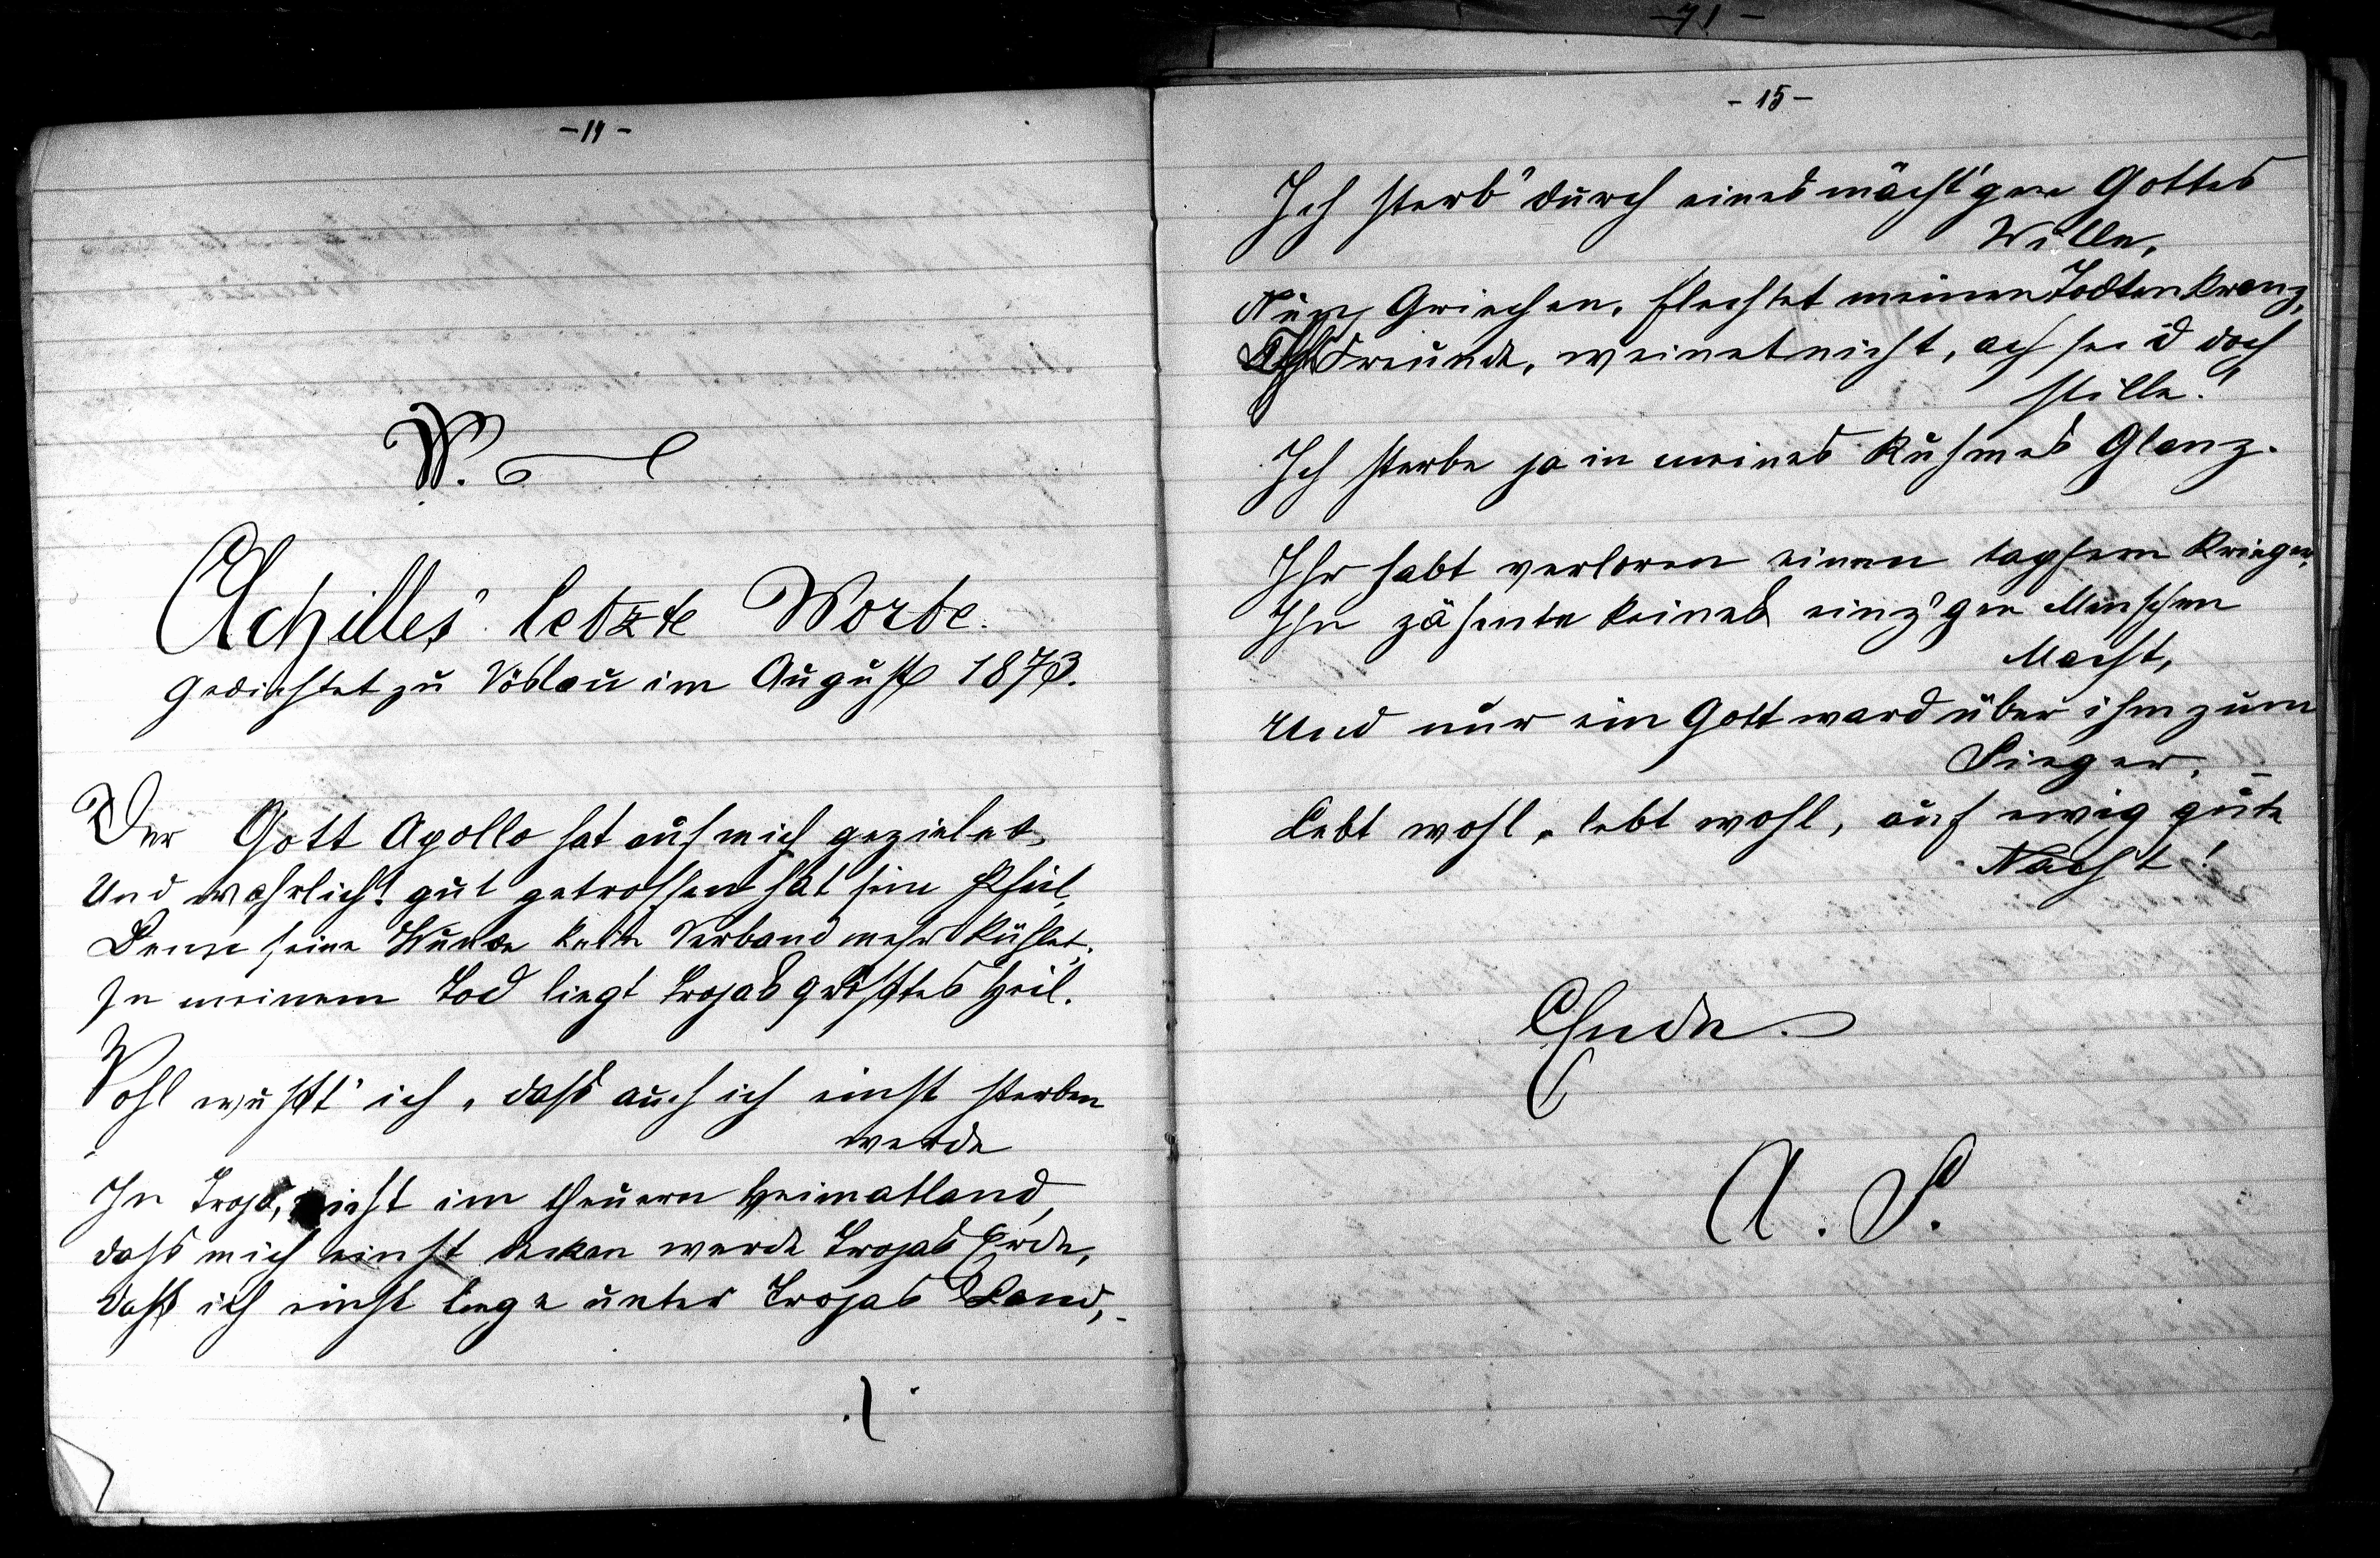 -14-
IV.
Achilles' letzte Worte.
Gedichtet zu Vöslau im August 1873.
Der Gott Apollo hat auf mich gezielet
Und wahrlich! gut getroffen hat sein Pfeil,
Denn seine Wunde kein Verband mehr kühlet.
In meinem Tod liegt Trojas größtes Heil.
Wohl wußt' ich, daß auch ich einst sterben
werde
In Troja, nicht im theuern Heimatland,
daß mich einst decken werde Trojas Erde,
daß ich einst liege unter Trojas Sand, -
-71-
-15-
Ich sterb' durch eines mächt'gen Gottes
Wille,
Nun, Griechen, flechtet meinen Todtenkranz,
Freunde, weinet nicht, ach seid doch
stille!
Ich sterbe ja in meines Ruhmes Glanz.
Ihr habt verloren einen tapfern Krieger,
Ihn zähmte keines einz'gen Menschen
Macht,
Und nur ein Gott ward über ihm zum
Sieger. -
Lebt wohl, lebt wohl, auf ewig gute
Nacht!
Ende.
A. S.